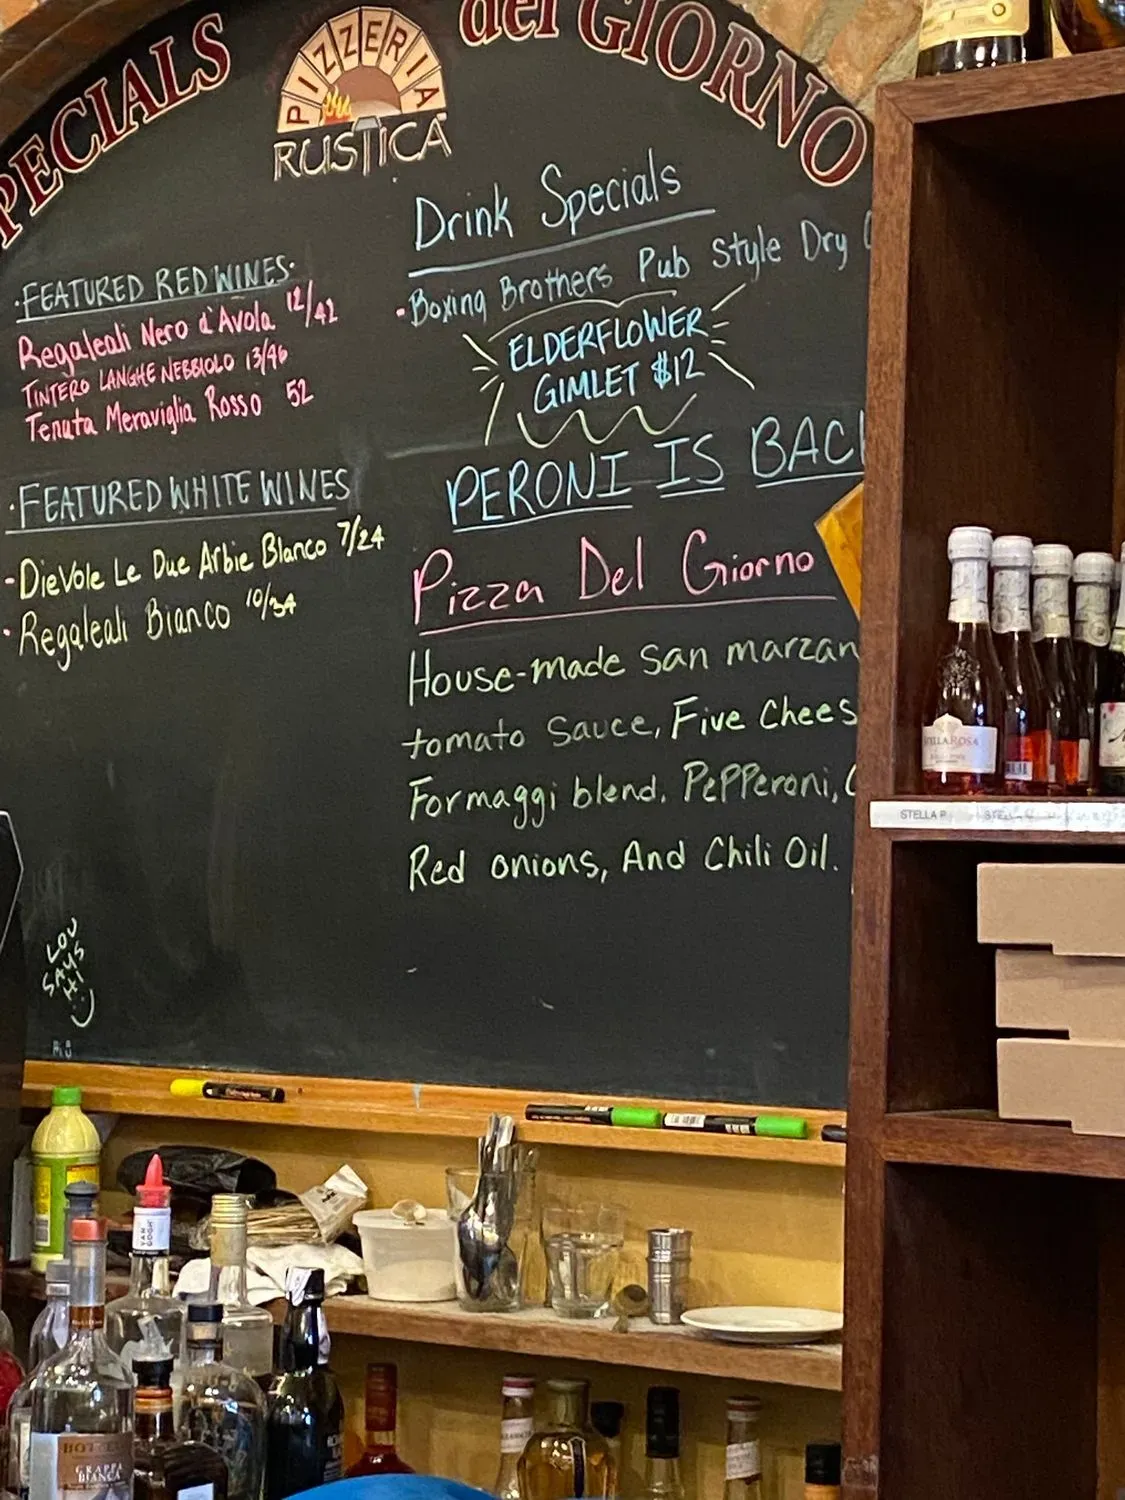 SPECIALS del GIORNO
PIZZERIA
RUSTICA
·FEATURED RED WINES·
Regaleali Nero d'Avola 12/42
TINTERO LANGHE NEBBIOLO 13/46
Tenuta Meraviglia Rosso 52
·FEATURED WHITE WINES
-DieVole Le Due Arbie Blanco 7/24
·Regaleali Bianco 10/34
LOU
SAYS
HI
Drink Specials
·Boxing Brothers Pub Style Dry
ELDERFLOWER
GIMLET $12
PERONI IS BACK
Pizza Del Giorno
House-made San marzan
tomato Sauce, Five Chees
Formaggi blend, Pepperoni,
Red onions, And Chili Oil.
STELLA ROSA
STELLA P
VAN
GOGH
GRAPPA
BIANCA